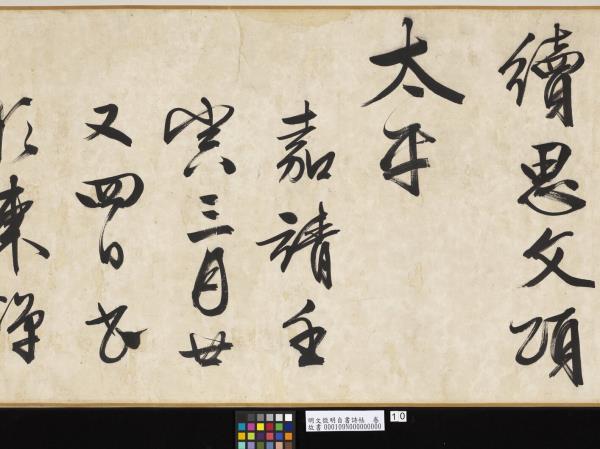 續思文頌
太平
嘉靖壬
寅三月廿
又四日書
於東禪
明文徵明自書詩帖 卷
故書000109N000000000
10